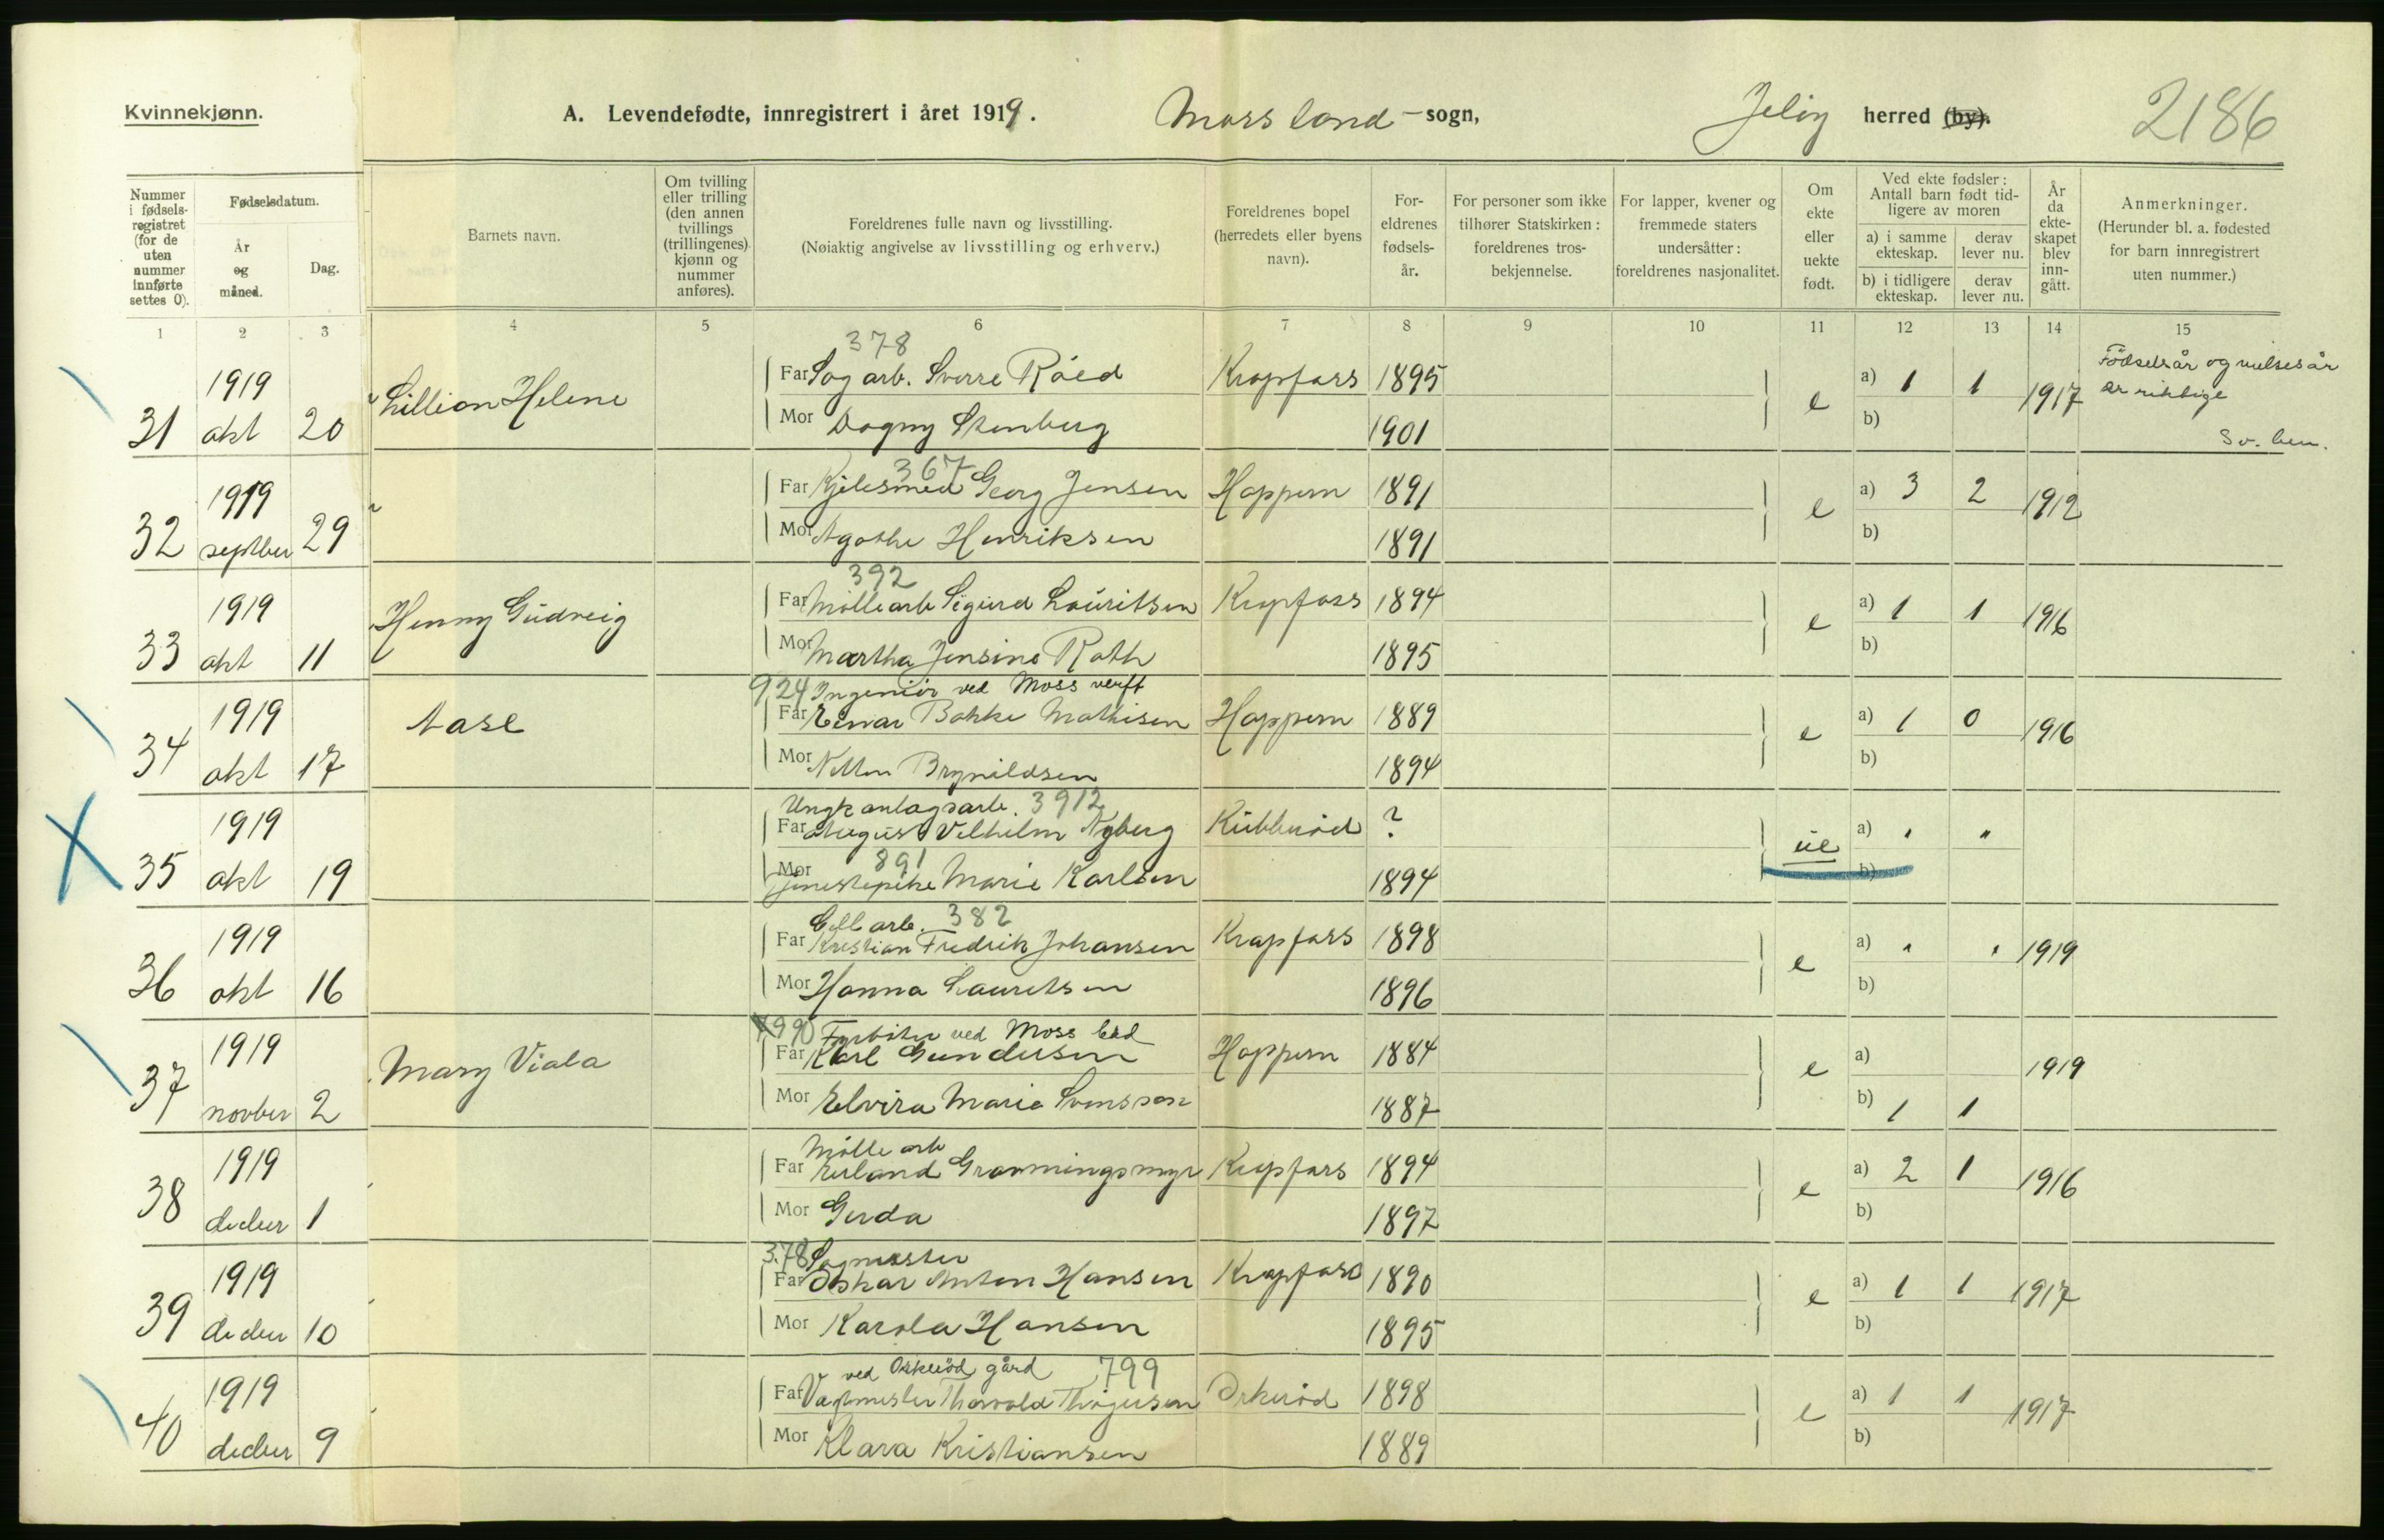 Kvinnekjønn.
A. Levendefødte, innregistrert i året 1919.
Moss land - sogn,
Jeløy herred (by).
2186
Nummer i fødsels-registret (for de uten nummer innførte settes 0).
Fødselsdatum.
År og måned.
Dag.
Barnets navn.
Om tvilling eller trilling (den annen tvillings (trillingenes) kjønn og nummer anføres).
Foreldrenes fulle navn og livsstilling.
(Nøiaktig angivelse av livsstilling og erhverv.)
Foreldrenes bopel (herredets eller byens navn).
For-eldrenes fødsels-år.
For personer som ikke tilhører Statskirken: foreldrenes tros-bekjennelse.
For lapper, kvener og fremmede staters undersåtter: foreldrenes nasjonalitet.
Om ekte eller uekte født.
Ved ekte fødsler: Antall barn født tid-ligere av moren
a) i samme ekteskap.
derav lever nu.
b) i tidligere ekteskap.
derav lever nu.
År da ekte-skapet blev inn-gått.
Anmerkninger.
(Herunder bl. a. fødested for barn innregistrert uten nummer.)
1 2 3 4 5 6 7 8 9 10 11 12 13 14 15
378
31 1919 okt 20 Lillian Helene
Far Sag arb. Sverre Röed Krapfoss 1895 e a) 1 1 1917
Mor Dagny Stenberg 1901 b)
Födselsår og vielsesår er riktige
367
32 1919 septber 29
Far Kjelesmed Georg Jensen Hoppern 1891 e a) 3 2 1912
Mor Agathe Henriksen 1891 b)
392
33 1919 okt 11 Henny Gudveig
Far Möllearb Sigurd Lauritsen Krapfoss 1894 e a) 1 1 1916
Mor Martha Jensine Roth 1895 b)
924 Ingeniör ved Moss verft
34 1919 okt 17 Aase
Far Einar Bakke Mathisen Hoppern 1889 e a) 1 0 1916
Mor Brynildsen 1894 b)
3912
35 1919 okt 19
Far August Vilhelm Nyberg Kubberöd ? ue a) " "
891
Mor Marie Karlsen 1894 b)
Cell arb. 382
36 1919 okt 16
Far Kristian Fredrik Johansen Krapfoss 1898 e a) " " 1919
Mor Hanna Lauritsen 1896 b)
990 ved Moss bad
37 1919 novber 2 Mary Viola
Far Karl Gundersen Hoppern 1884 e a) 1919
Mor Elvira Marie Svensson 1887 b) 1 1
Mölle arb
38 1919 decber 1
Far Erland Krapfoss 1894 e a) 2 1 1916
Mor Gerda 1897 b)
378 Sagmester
39 1919 decber 10
Far Oskar Anton Hansen Krapfoss 1890 e a) 1 1 1917
Mor Karola Hansen 1895 b)
ved Orkeröd gård 799
40 1919 decber 9
Far Thorvald Thögersen Orkeröd 1898 e a) 1 1 1917
Mor Klara Kristiansen 1889 b)